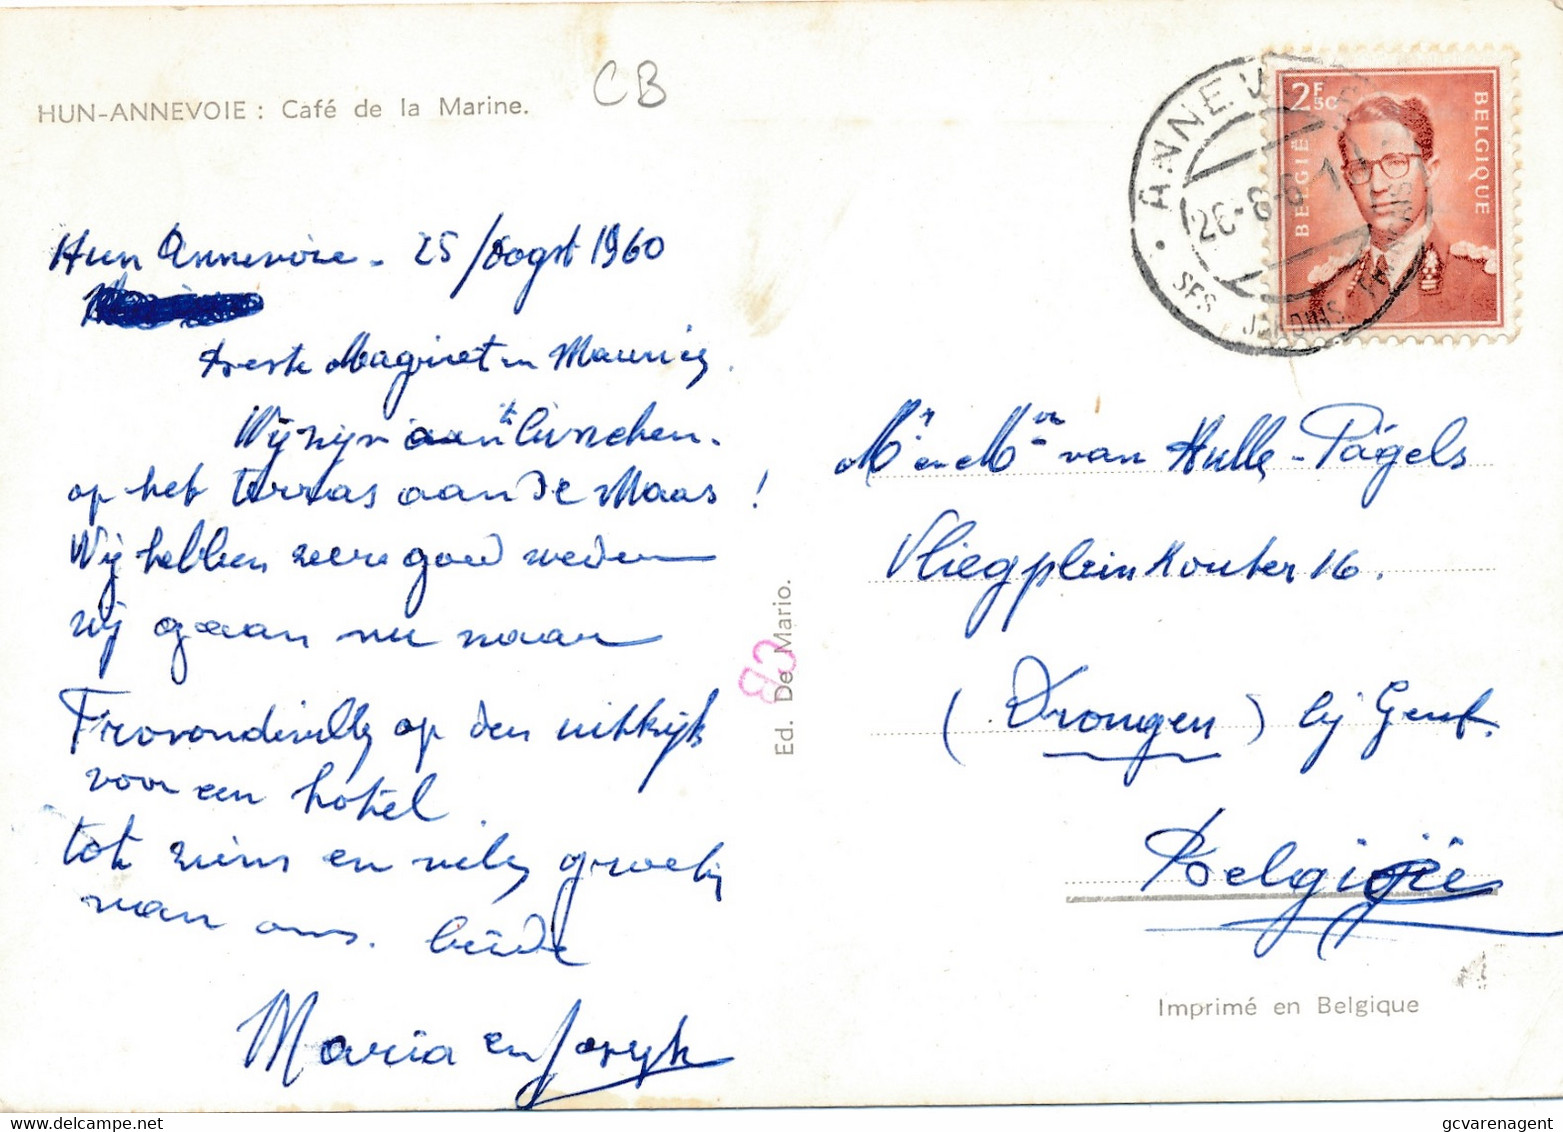 HUN-ANNEVOIE : Café de la Marine.
CB
Hun Annevoie - 25/Oogst 1960
Beste Magriet en Mauricy.
Wij zijn aan 't lunschen.
op het terras aan de Maas!
Wij hebben zeere goed weder
wij gaan nu naar
Frovondevilly op den uitkijk
voor een hotel.
tot ziens en vele groetej
van ons. beide
Maria en Joseph
Ed. De Mario.
CB
ANNEVOIE
26-8-6
SFS JARDINS FRANÇAIS
2F50
BELGIË
BELGIQUE
Mr en Mevr van Hulle-Pägels
Vliegpleinkouter 16.
(Drongen) bij Gent.
Belgiëe
Imprimé en Belgique
https://www.delcampe.net
gcvarenagent